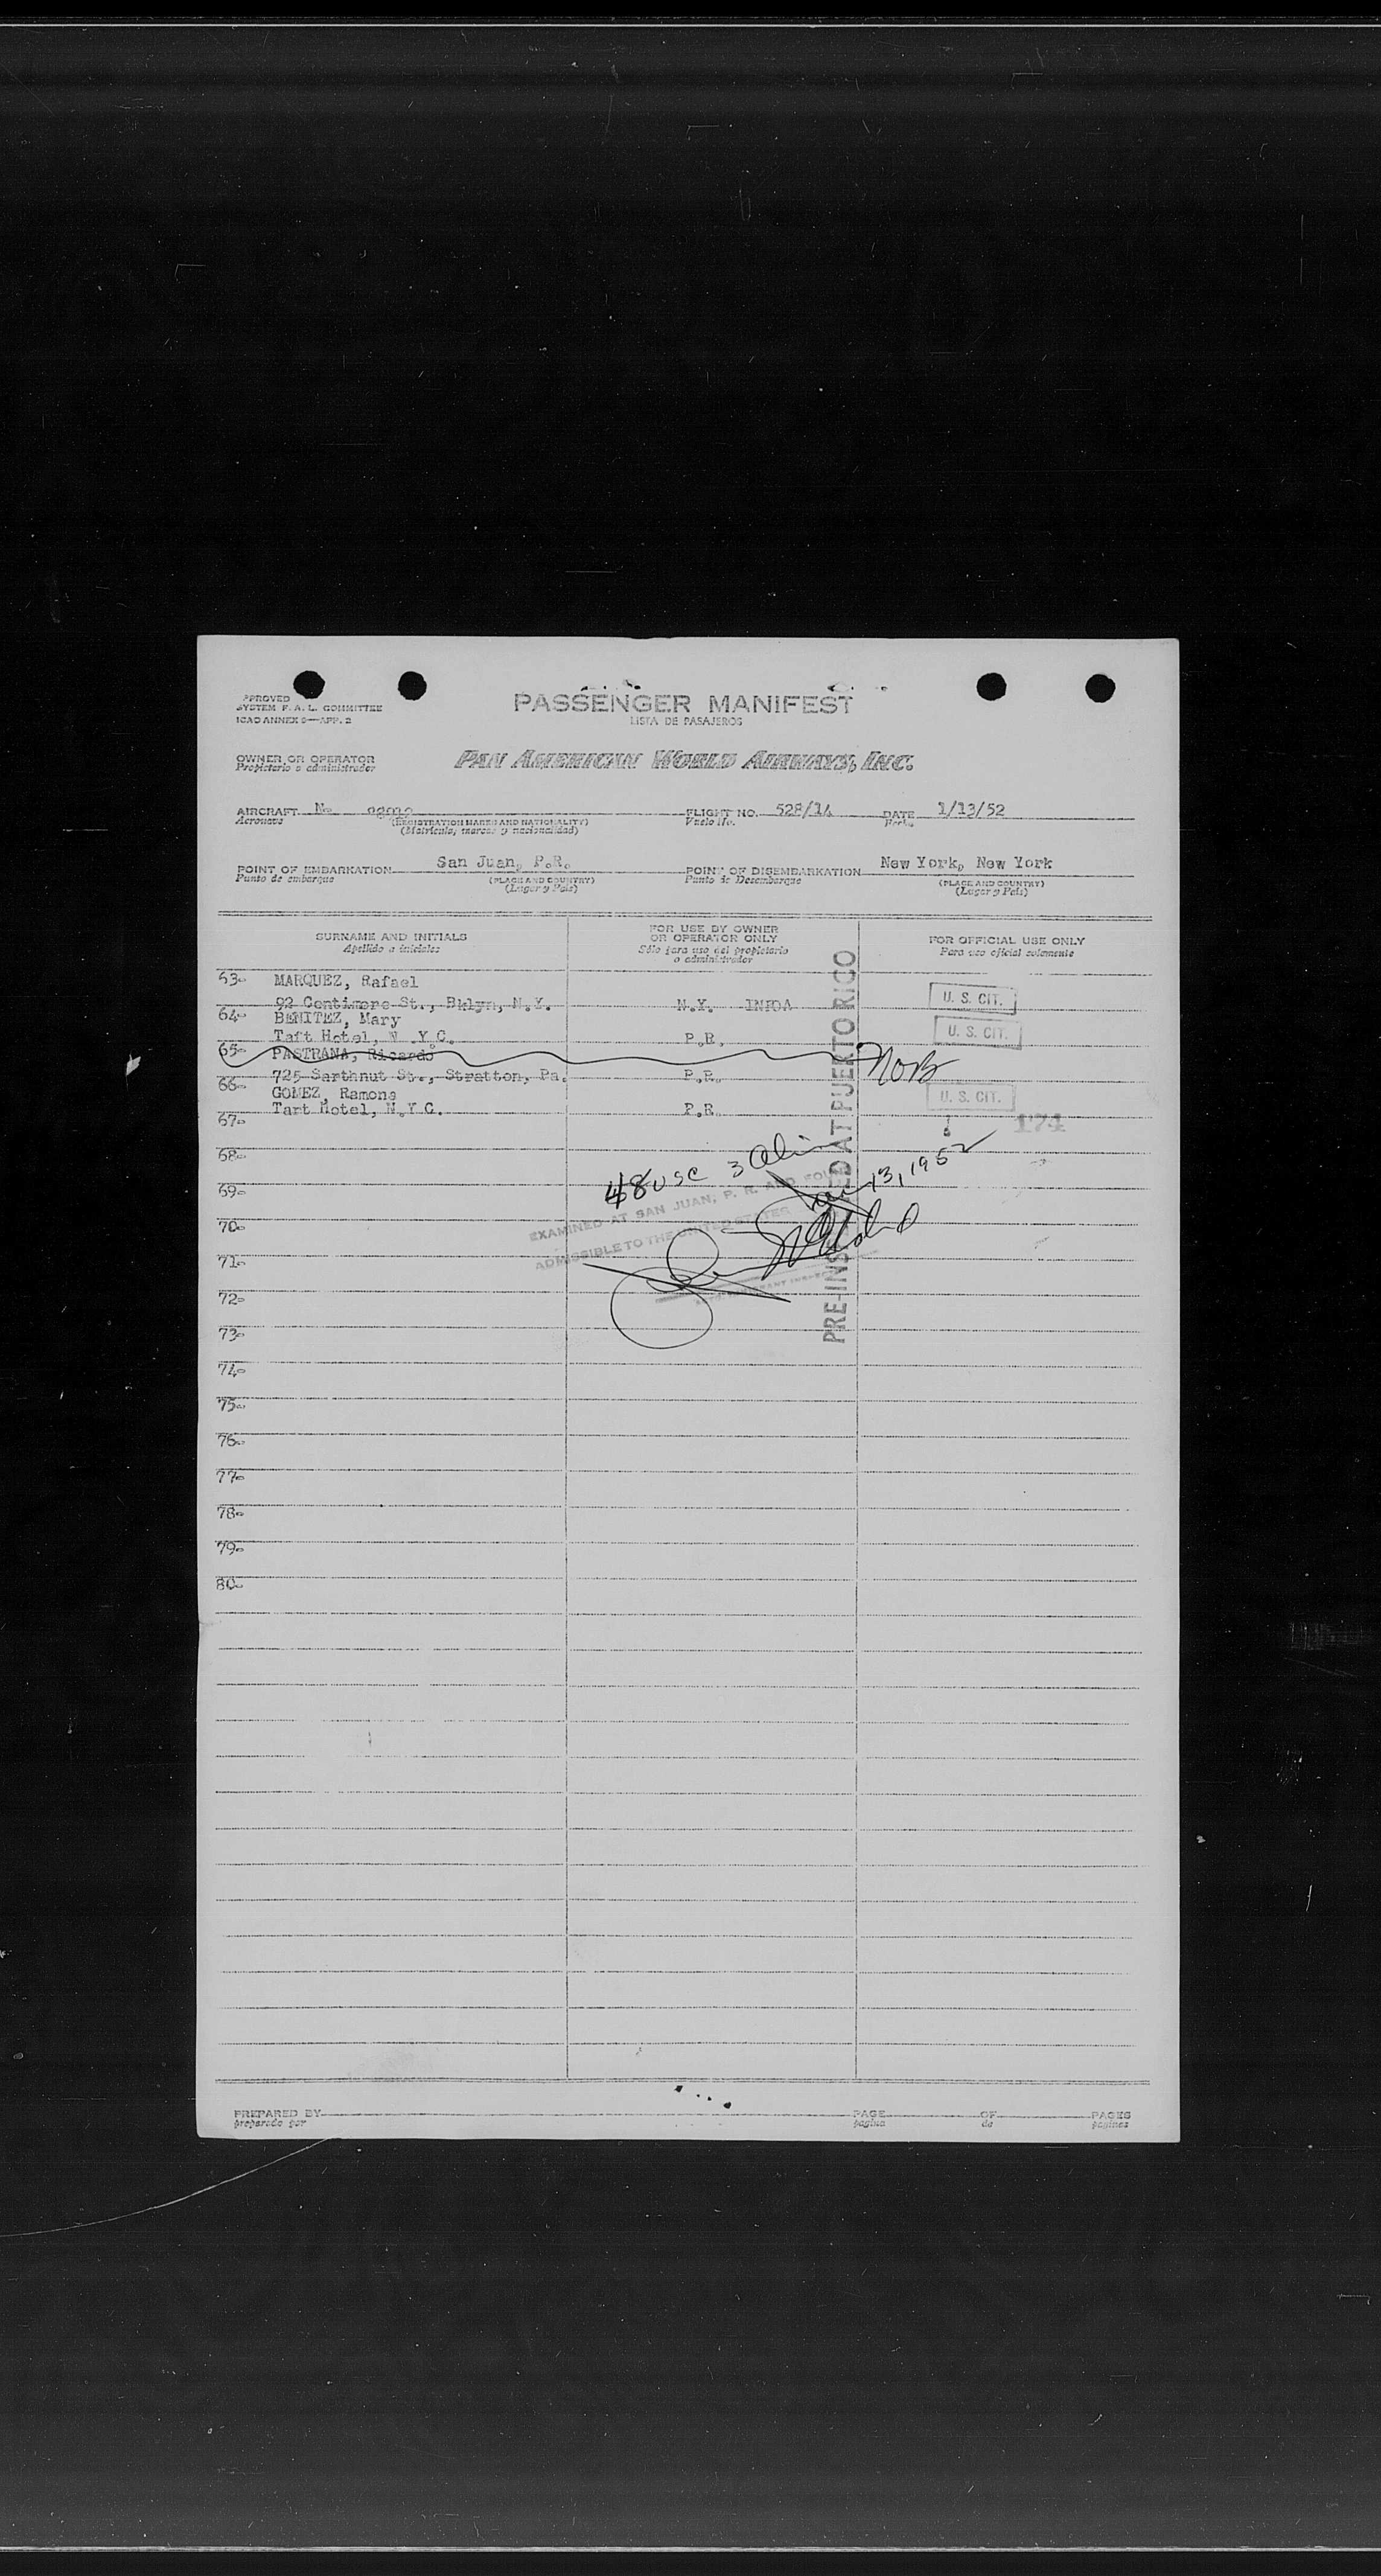 APPROVED
SYSTEM F. A. L. COMMITTEE
ICAO ANNEX 9—APP. 2
PASSENGER MANIFEST
LISTA DE PASAJEROS
OWNER OR OPERATOR
Propietario o administrador
PAN AMERICAN WORLD AIRWAYS, INC.
AIRCRAFT N- FLIGHT NO. 528/14 DATE 1/13/52
Aeronave (REGISTRATION MARKS AND NATIONALITY) Vuelo No. Fecha
(Matricula, marcas y nacionalidad)
POINT OF EMBARKATION San Juan, P.R. POINT OF DISEMBARKATION New York, New York
Punto de embarque (PLACE AND COUNTRY) Punto de Desembarque (PLACE AND COUNTRY)
(Lugar y Pais) (Lugar y Pais)
SURNAME AND INITIALS FOR USE BY OWNER OR OPERATOR ONLY FOR OFFICIAL USE ONLY
Apellido a iniciales Sólo para uso del propietario o administrador Para uso oficial solamente
63- MARQUEZ, Rafael
92 St., Bklyn, N.Y. N.Y. U. S. CIT.
64- BENITEZ, Mary
Taft Hotel, N .Y.C. P.R. U. S. CIT.
65- PASTRANA, Ricardo NOB
725 Sarthnut St., Stratton, Pa. P.R.
66- GOMEZ, Ramona U. S. CIT.
Tart Hotel, N.Y.C. P.R.
67- 174
68-
48 USC 3 Alien
Jan 13, 1952
69-
EXAMINED AT SAN JUAN, P. R. AND FOUND
70-
ADMISSIBLE TO THE UNITED STATES
71-
72-
IMMIGRANT INSPECTOR
73-
PRE-INSPECTED AT PUERTO RICO
74-
75-
76-
77-
78-
79-
80-
PREPARED BY PAGE OF PAGES
preparado por pagina de paginas